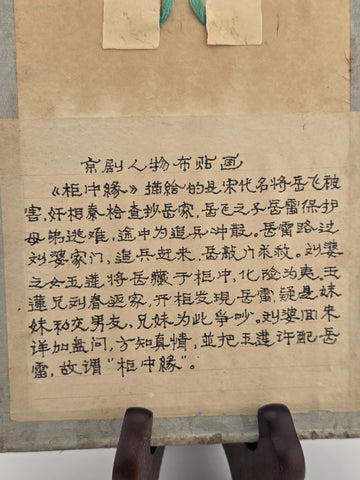 京剧人物布贴画
《柜中缘》描绘的是宋代名将岳飞被
害,奸相秦桧查抄岳家,岳飞之子岳雷保护
母弟逃难,途中为追兵冲散。岳雷路过
刘婆家门,追兵赶来,岳敲门求救。刘婆
之女玉莲将岳藏于柜中,化险为夷,玉
蓮兄刘春返家,开柜发現岳雷,疑是妹
妹私交男友,兄妹为此争吵。刘婆回来
详加盘问,方知真情,並把玉莲许配岳
雷,故谓"柜中緣"。